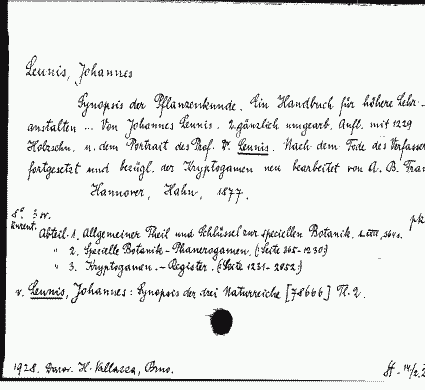 Leunis, Johannes
Synopsis der Pflanzenkunde. Ein Handbuch für höhere Lehr-
anstalten ... Von Johannes Leunis. 2. gänzlich umgearb. Aufl. mit 1229
Holzschn. u. dem Portrait des Prof. Dr. Leunis. Nach dem Tode des Verfasser
fortgesetzt und bezügl. der Kryptogamen neu bearbeitet von A. B. Fran
Hannover, Hahn, 1877.
8° 3 sv.
Abteil. 1. Allgemeiner Theil und Schlüssel zur speciellen Botanik.
" 2. Specielle Botanik - Phanerogamen. (: Seite 365-1230:)
" 3. Kryptogamen. - Register. (: Seite 1231-2052:)
v. Leunis, Johannes: Synopsis der drei Naturreiche [78666] Tl. 2.
1928. Darov. H. Vallazza, Brno.